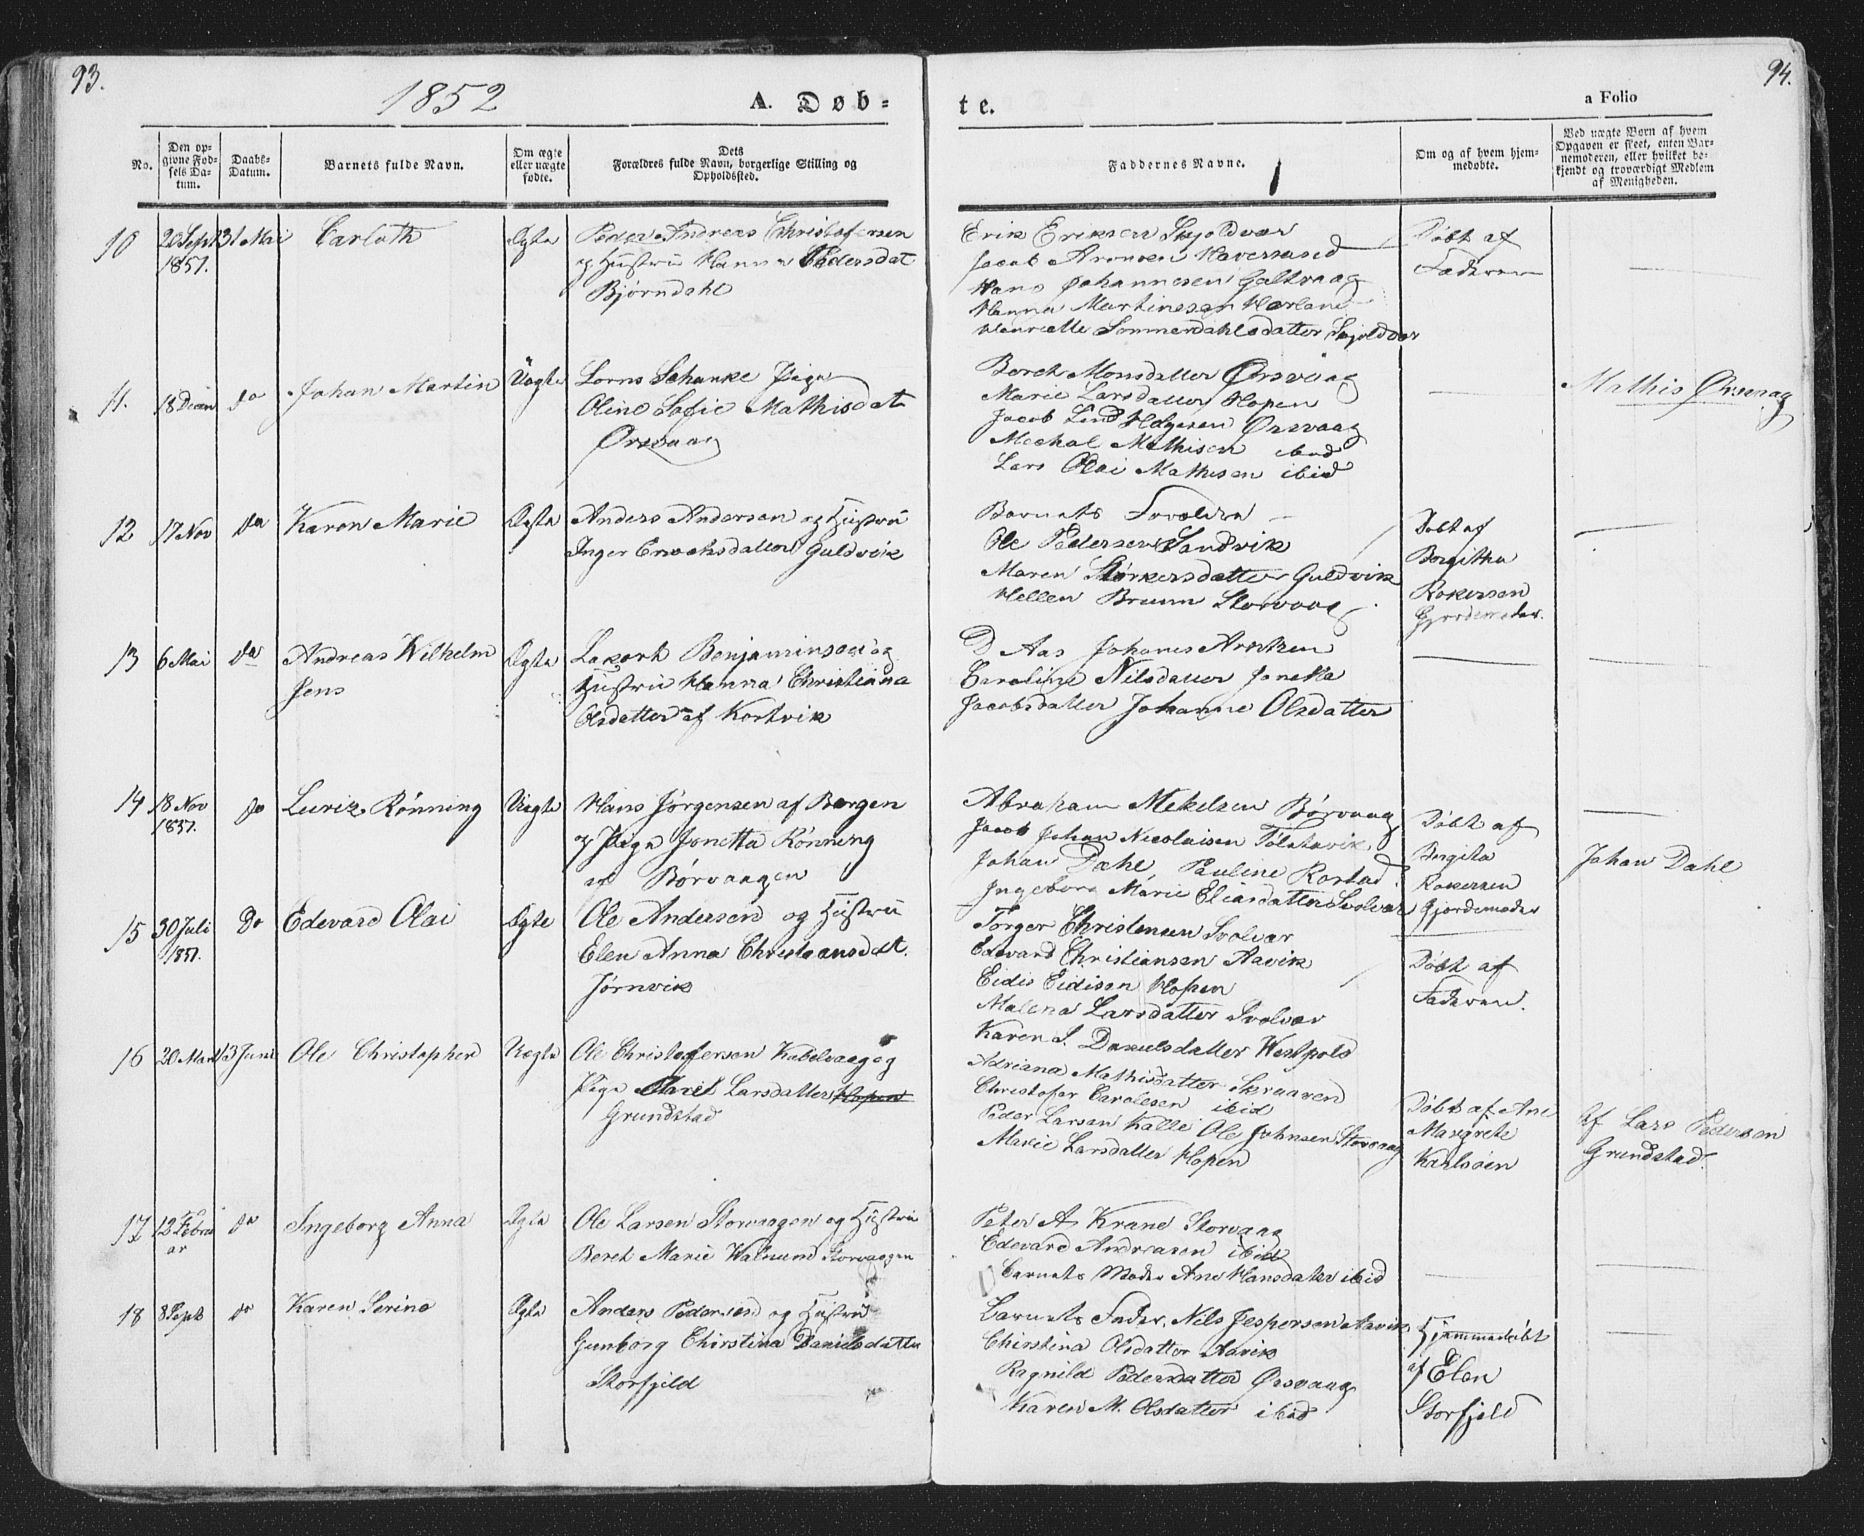 93.
1852
A. Døb-
te.
a Folio
94.
No.
Den op-
givne Fød-
sels Da-
tum.
Daabs-
Datum.
Barnets fulde Navn.
Om ægte
eller uægte
fødte.
Dets
Forældres fulde Navn, borgerlige Stilling og
Opholdssted.
Faddernes Navne.
Om og af hvem hjem-
medøbte.
Ved uægte Børn af hvem
Opgaven er skeet, enten Bar-
nemoderen, eller hvilket be-
kjendt og troværdigt Medlem
af Menigheden.
10
20 Sept
1851.
31 Mai
Carloth
Ægte
Peder Andreas Christofersen
og Hustru Hanna Pedersdat
Bjørndahl
Erik Eriksen Skjoldvær
Jacob Aronsen
Hans Johannesen Galtvaag
Hanna Martinessen
Sommerdahlsdatter Skjoldvær
Døbt af
Faderen
11.
18
do
Johan Martin
Uægte
Lorns Schanke Pige
Oline Sofie Mathisdat
Ørsvaag
Beret Monsdatter Ørsvaag
Marie Larsdatter Hopen
Jacob Lind Ørsvaag
Mechal Mathisen ibid
Lars Olai Mathisen ibid
Mathis Ørsvaag
12
17 Nov
do
Karen Marie
Ægte
Anders Andersen og Hustru
Inger Guldvik
Barnets Forældre
Ole Pedersen Sandvik
Maren Størkersdatter Guldvik
Hellen Bruun Storvaag
Døbt af
Bergitha
Rokersen
Gjordemoder.
13
6 Mai
do
Andreas Wilhelm
Jens
Ægte
Benjaminsen og
Hustru Hanna Christiana
Olsdatter af Kortvik
D Aas Johanes
Caroline Nilsdatter
Jacobsdatter Johanne Olsdatter
14
18 Nov
1851.
do
Rønning
Uægte
Hans Jørgensen af Bergen
og Pige Jonetta Rønning
af Børvaagen
Abraham Mekelsen Børvaag
Jacob Johan Nicolaisen
Johan Dahl Pauline Rørstad
Ingeborg Marie Eliasdatter Svolvær
Døbt af
Birgita
Rokersen
Gjordemoder
Johan Dahl
15
30 Juli
1851.
Do
Edevard Olai
Ægte
Ole Andersen og Hustru
Elen Anna Christiansdat.
Jørnvik
Torger Christensen Svolvær
Edevard Christiansen Aavik
Eidis Eidisen Hopen
Malena Larsdatter Svolvær
Døbt af
Faderen.
16
20 Mart
13 Juni
Ole Christopher
Uægte
Ole Christofersen Kabelvaag og
Pige Marit Larsdatter Hopen
Grundstad
Karen S. Danielsdatter
Adriana Mathisdatter Skraaven
Christofer Carolesen ibid
Peder Larsen Kalle Ole Johnsen Storvaag
Marie Larsdatter Hopen
Døbt af Ane
Margrete
Karlsøen
af Lars Pedersen
Grundstad.
17
12 Febru
ar
do
Ingeborg Anna
Ægte
Ole Larsen Storvaagen og Hustru
Beret Marie Walnund Storvaagen
Peter A Krane Storvaag
Edevard Andreasen ibid
Barnets Moder Ane Hansdater ibid
18
8 Sept
do
Karen Serine
Ægte
Anders Pedersen og Hustru
Gunborg Chirstina Danielsdatter
Storfjeld
Barnets Fader, Nils Jespersen Aavik
Chirstina Olsdatter Aavik
Ragnild Pedersdatter Ørsvaag
Karen M. Olsdatter ibid
Hjemmedøbt
af Elen
Storfjeld